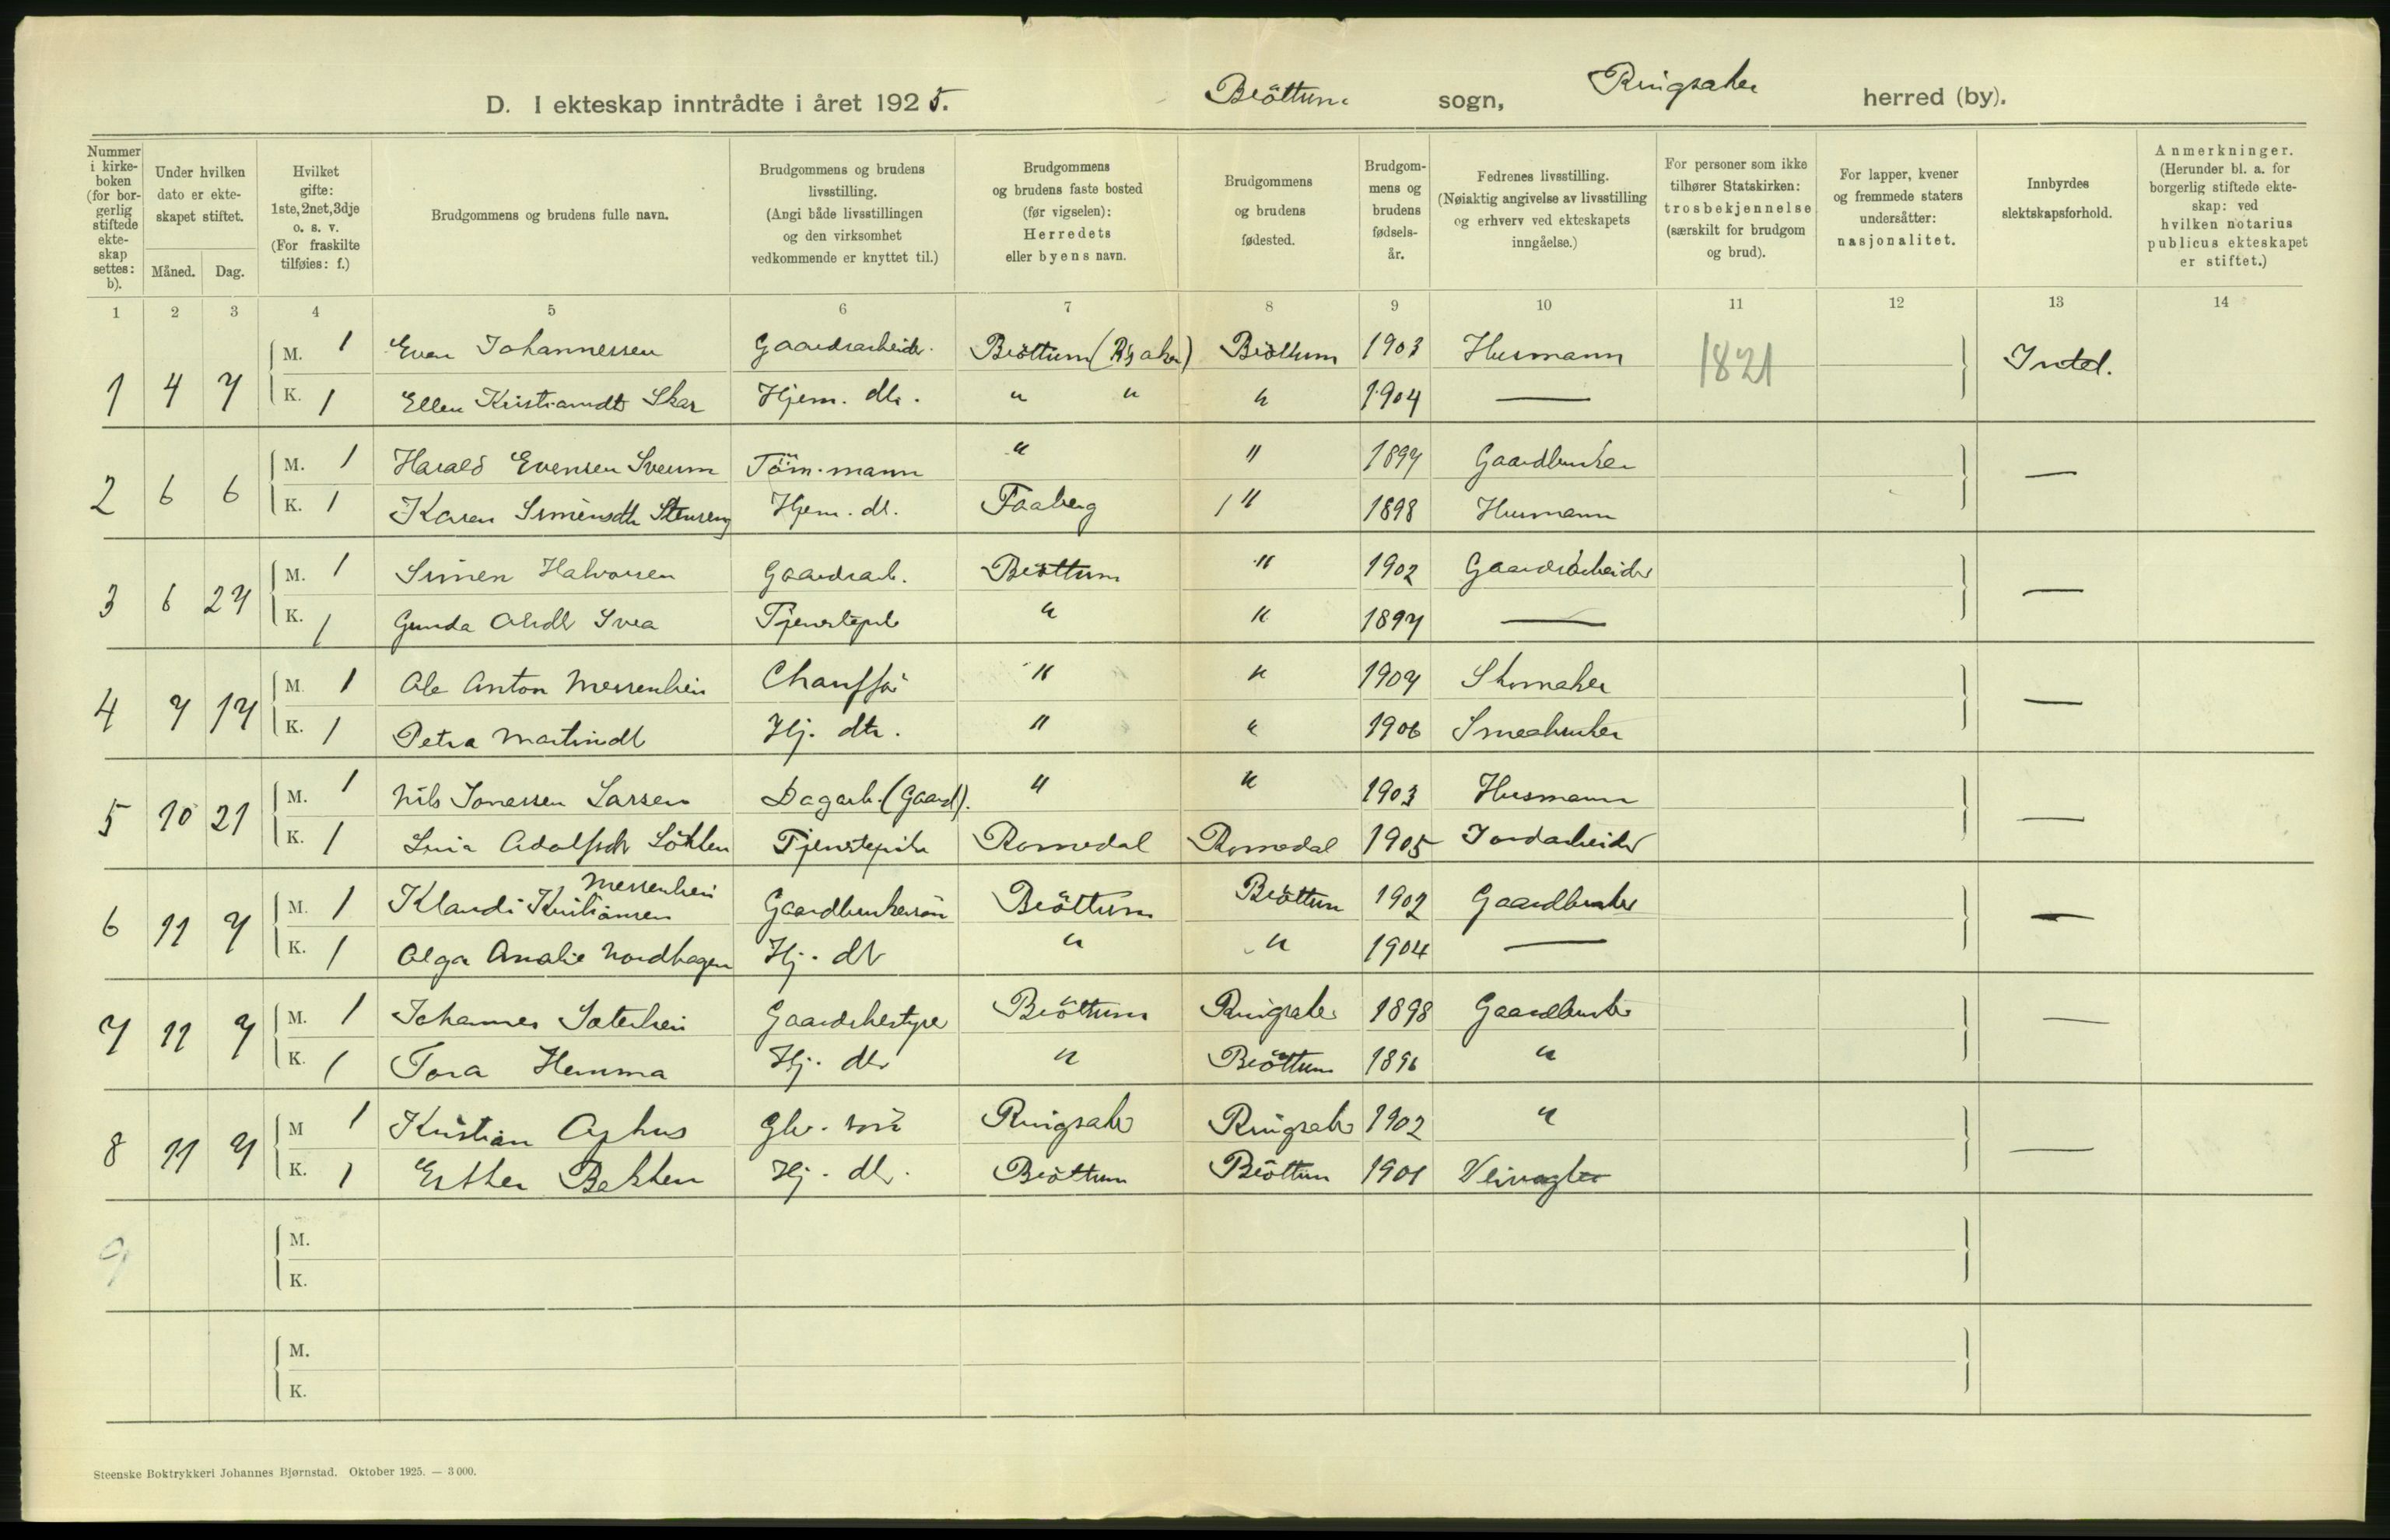 D. I ekteskap inntrådte i året 1925. Bröttum sogn, Ringsaker herred (by).
Nummer i kirke-boken (for bor-gerlig stiftede ekte-skap settes: b).
Under hvilken dato er ekte-skapet stiftet.
Måned. Dag.
Hvilket gifte: 1ste, 2net, 3dje o. s. v. (For fraskilte tilføies: f.)
Brudgommens og brudens fulle navn.
Brudgommens og brudens livsstilling. (Angi både livsstillingen og den virksomhet vedkommende er knyttet til.)
Brudgommens og brudens faste bosted (før vigselen): Herredets eller byens navn.
Brudgommens og brudens fødested.
Brudgom-mens og brudens fødsels-år.
Fedrenes livsstilling. (Nøiaktig angivelse av livsstilling og erhverv ved ekteskapets inngåelse.)
For personer som ikke tilhører Statskirken: trosbekjennelse (særskilt for brudgom og brud).
For lapper, kvener og fremmede staters undersåtter: nasjonalitet.
Innbyrdes slektskapsforhold.
Anmerkninger. (Herunder bl. a. for borgerlig stiftede ekte-skap: ved hvilken notarius publicus ekteskapet er stiftet.)
1 2 3 4 5 6 7 8 9 10 11 12 13 14
1 4 7 M. 1 Even Johannessen Gaardsarbeider. Bröttum (R'saker) Bröttum 1903 Husmann 1821 Intet.
K. 1 Ellen Kristiansdtr Skar Hjem. dtr. " " " 1904 —
2 6 6 M. 1 Harald Evensen Sveum Töm.mann " " 1897 Gaardbruker —
K. 1 Karen Simensdtr Stenseng Hjem. dt. Faaberg " 1898 Husmann
3 6 27 M. 1 Simen Halvorsen Gaardsarb. Bröttum " 1902 Gaardsarbeider —
K. 1 Gunda Olsdtr Svea Tjenestepike " " 1897 —
4 7 17 M. 1 Ole Anton Messenlien Chauffør " " 1907 Skomaker —
K. 1 Petra Martinsdt Hj. dtr. " " 1906 Smaabruker
5 10 21 M. 1 Nils Jonassen Larsen Dagarb. (Gaard). " " 1903 Husmann —
K. 1 Adolfsdtr Løkken Tjenestepike Romedal Romedal 1905 Jordarbeider
6 11 7 M. 1 Klandi Kristiansen Messenlien Gaardbrukersön Bröttum Bröttum 1902 Gaardbruker —
K. 1 Olga Amalie Nordhagen Hj. dtr " " 1904 —
7 11 7 M. 1 Johannes Sæterlien Gaardsbestyrer Bröttum Ringsaker 1898 Gaardbruker —
K. 1 Tora Hemma Hj. dtr " Bröttum 1896 "
8 11 7 M 1 Kristian Ophus Gbr. sön Ringsaker Ringsaker 1902 " —
K. 1 Esther Bakken Hj. dtr. Bröttum Bröttum 1901 Veivogter
9 M.
K.
M.
K.
Steenske Boktrykkeri Johannes Bjørnstad. Oktober 1925. — 3 000.